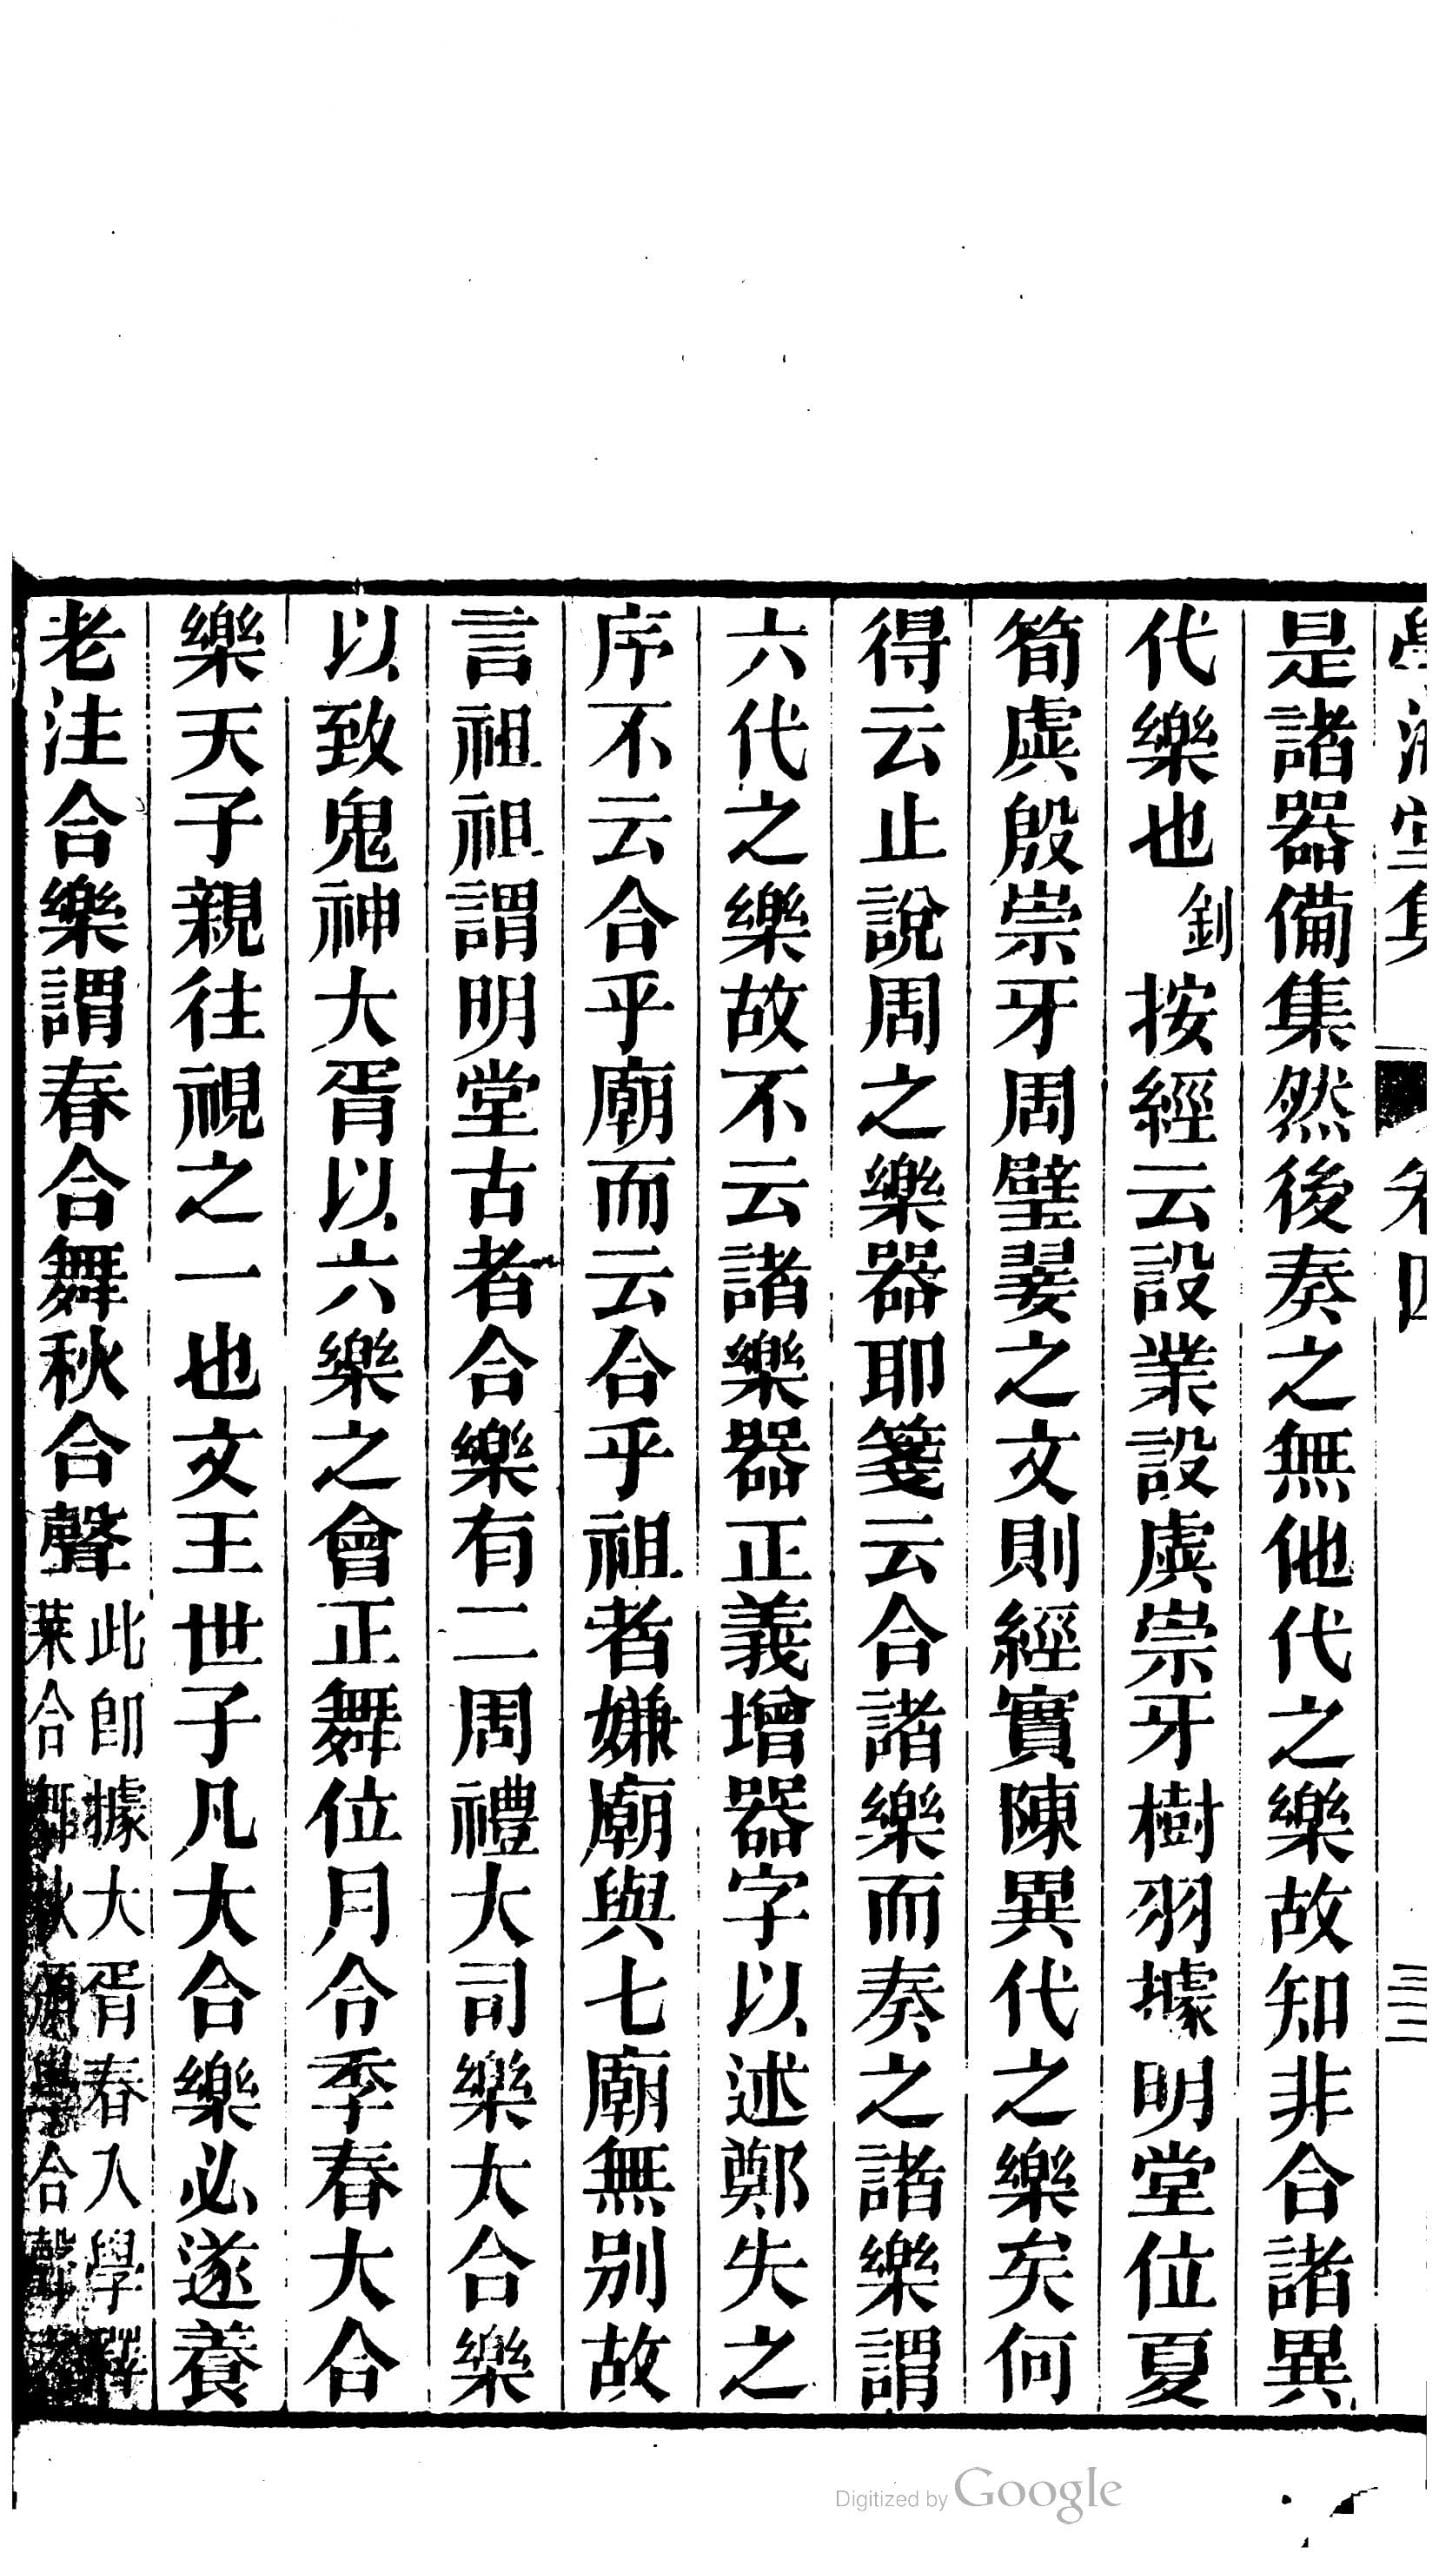 學海堂集 卷四 三三
是諸器備集然後奏之無他代之樂故知非合諸異
代樂也釗按經云設業設虡崇牙樹羽據明堂位夏
筍虡殷崇牙周璧翣之文則經實陳異代之樂矣何
得云止說周之樂器耶箋云合諸樂而奏之諸樂謂
六代之樂故不云諸樂器正義增器字以述鄭失之
序不云合乎廟而云合乎祖者嫌廟與七廟無別故
言祖祖謂明堂古者合樂有二周禮大司樂大合樂
以致鬼神大胥以六樂之會正舞位月令季春大合
樂天子親往視之一也文王世子凡大合樂必遂養
老注合樂謂春合舞秋合聲此卽據大胥春入學釋
菜合舞秋頒學合聲
Digitized by Google